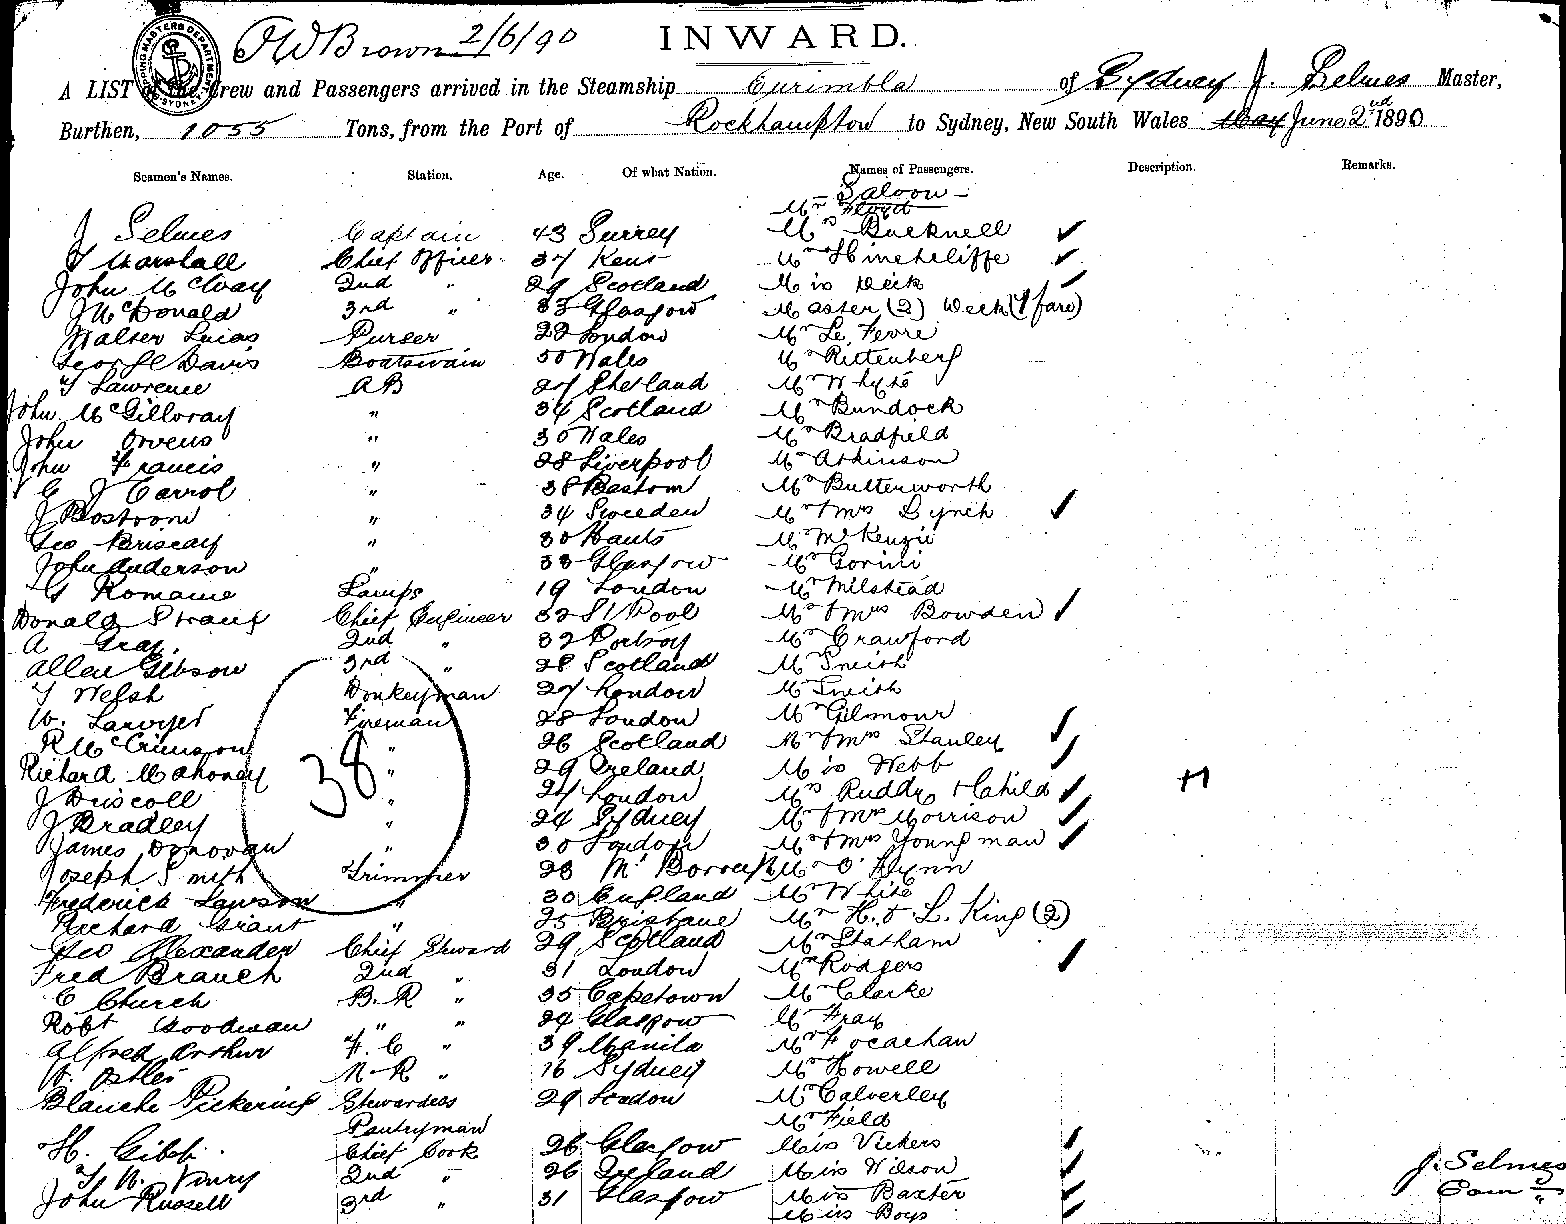 F W Brown 2/6/90 INWARD.
A LIST of the Crew and Passengers arrived in the Steamship Eurimbla of Sydney J. Selmes Master,
Burthen, 1055 Tons, from the Port of Rockhampton to Sydney, New South Wales May June 2nd 1890
Seamen's Names. Station. Age. Of what Nation. Names of Passengers. Description. Remarks.
Saloon -
Mr Floyd
J Selmes Captain 43 Surrey Mrs Bucknell ✓
T Marshall Chief Officer 37 Kent Mr Hinchcliffe ✓
John McIvay 2nd " 29 Scotland Miss ✓
J McDonald 3rd " 33 Glasgow Master (2) (1 fare)
Walter Lucas Purser 22 London Mr Le Fevre
George Davis Boatswain 50 Wales Mr Rittenberg
T Lawrence AB 27 Shetland Mr Whyte
John McGillvray " 34 Scotland Mr Bundock
John Owens " 30 Wales Mr Bradfield
John Francis " 28 Liverpool Mr Atkinson
C J Carrol " 38 Mr Butterworth
J Bostrom " 34 Sweeden Mr & Mrs Lynch ✓
Geo Briscay " 30 Hants Mr McKenzie
John Anderson " 33 Glasgow Mr Gorini
G Romaine Lamps 19 London Mr Milstead
Donald Strang Chief Engineer 32 S'Pool Mr & Mrs Bowden ✓
A Gray. 2nd " 32 Portsoy Mr Crawford
Allen Gibson 3rd " 28 Scotland Mr Smith
T Welsh Donkeyman 27 London Mr Smith
W. Sawyer Fireman 28 London Mr Gilmour
R McCrimson " 26 Scotland Mr & Mrs Stanley ✓
Richard Mahoney 38 " 29 Ireland Miss Webb ✓
J Driscoll " 27 London Mrs Ruddy & Child ✓ H
J Bradley " 24 Sydney Mr & Mrs Morrison ✓
James Donovan " 30 London Mr & Mrs Youngman ✓
Joseph Smith Trimmer 23 Mr O'Flynn
Frederick Lawson " 30 England Mr White
Richard Grant " 25 Brisbane Mr H. & L. King (2)
Geo Alexander Chief Steward 29 Scotland Mr Statham
Fred Branch 2nd " 31 London Mrs Rodgers ✓
C Church B.R " 35 Capetown Mr Clarke
Robt Goodman " " 24 Glasgow Mr Fray
Alfred Arthur F.C " 39 Manila Mr Focachan
W. Ostler M.R " 16 Sydney Mr Howell
Blanche Pickering Stewardess 29 London Mr Calverley
Pantryman Mr Field
H. Gibb. Chief Cook 26 Glasgow Miss Vickers ✓
T W. Vinry 2nd " 26 Ireland Miss Wilson ✓ J. Selmes
John Russell 3rd " 31 Glasgow Miss Baxter ✓ Com "
Miss Boys ✓